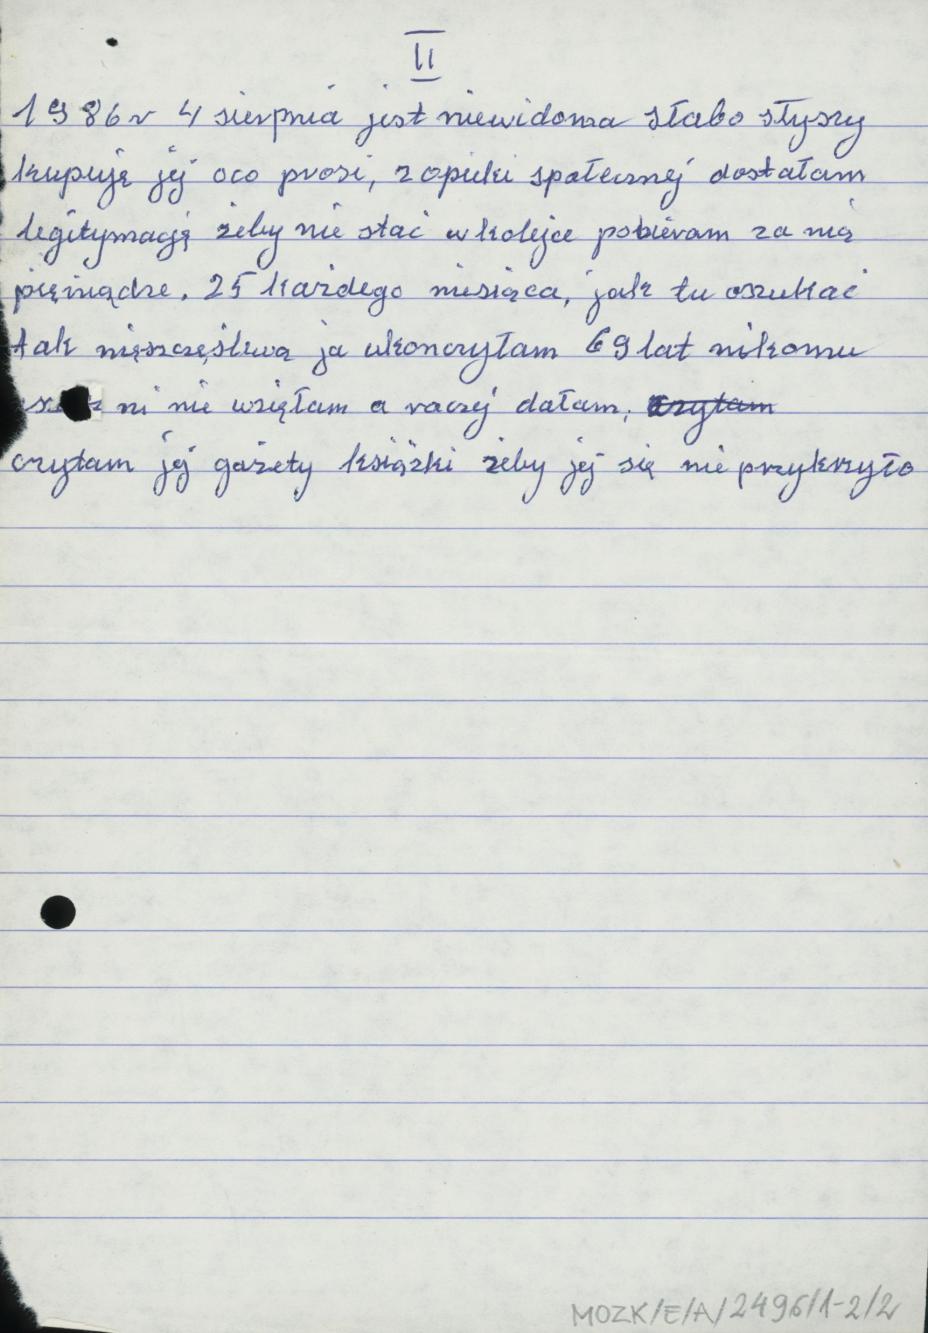 II
1986r 4 sierpnia jest niewidoma słabo słyszy
kupuję jej oco prosi, z opieki społecznej dostałam
legitymację żeby nie stać w kolejce pobieram za nią
pięniądze. 25 każdego miesiąca, jak tu oszukać
tak nięszczęśliwą ja ukończyłam 69 lat nikomu
ni nie wzięłam a raczej dałam, czytam
czytam jej gazety książki żeby jej się nie przykrzyło
MOZK/E/A/2496/1-2/2